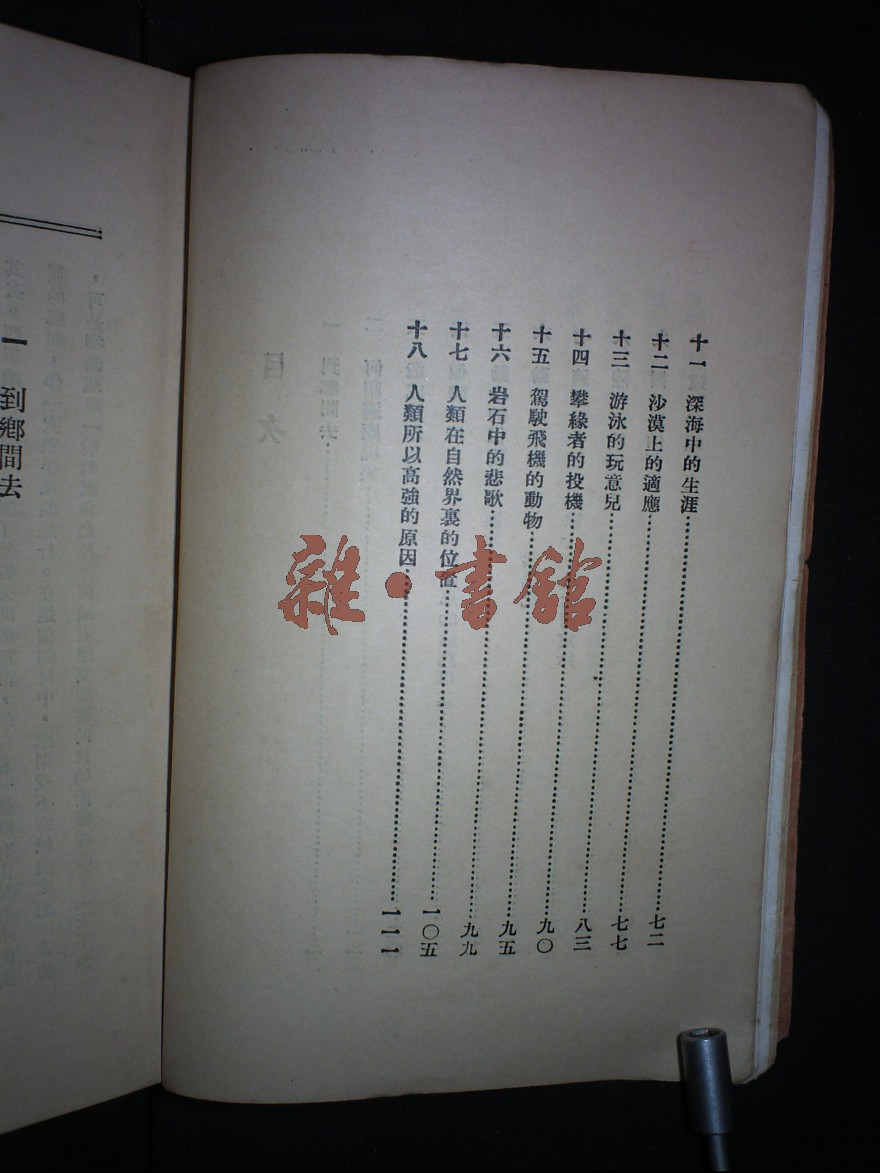 十一 深海中的生涯……七二
十二 沙漠上的適應……七七
十三 游泳的玩意兒……八三
十四 攀緣者的投機……九〇
十五 駕駛飛機的動物……九五
十六 岩石中的悲歌……九九
十七 人類在自然界裏的位置……一〇五
十八 人類所以高強的原因……一一一
一 到鄉間去
雜·書館